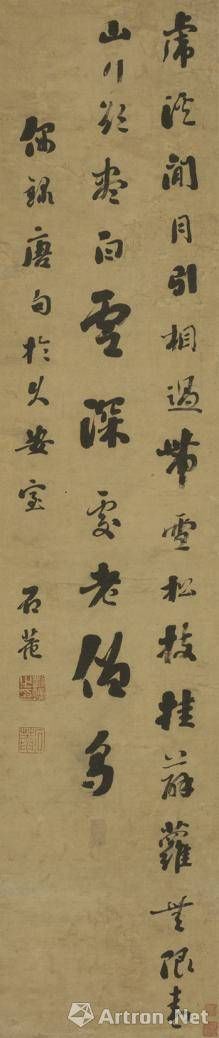 虎溪閒月引相過帶雪松枝挂薜蘿無限青
山行欲盡白雲深處老僧多
偶錄唐句於久安室 石菴
Artron.Net